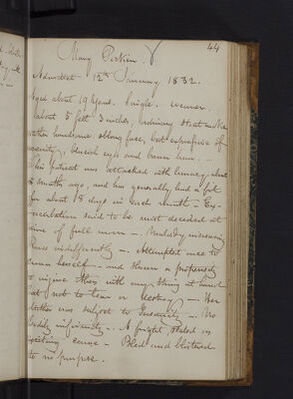 44
Mary Parker.
Admitted 12th January 1832.
Aged about 19 years. Single. weaver
about 5 feet 3 inches, ordinary stout make
rather handsome oblong face, but expressive of
vacancy, blueish eyes and brown hair.
This patient was attacked with lunacy about
months ago, and has generally had a fit
for about 18 days in each month — Ex-
acerbation said to be most decided at
time of full moon — Malady increasing
indifferently — Attempted once to
drown herself — and shown a propensity
to injure others with any thing at hand
but not to tear or destroy — Her
was subject to Insanity — No
bodily infirmity. A fright stated as
exciting cause — Bled and blistered
to no purpose.